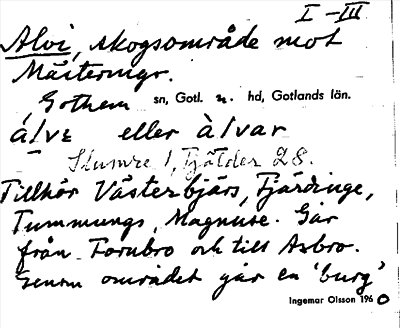 I–III
Alvi, skogsområde mot
Mästermyr.
Gothem sn, Gotl. n. hd, Gotlands län.
álvε eller àlvar
Slumre 1, Tjälder 28.
Tillhör Västerbjärs, Fjärdinge,
Tummungs, Magnuse. Går
från Fornbro och till Axbro.
Genom området går en 'burg'
Ingemar Olsson 1960